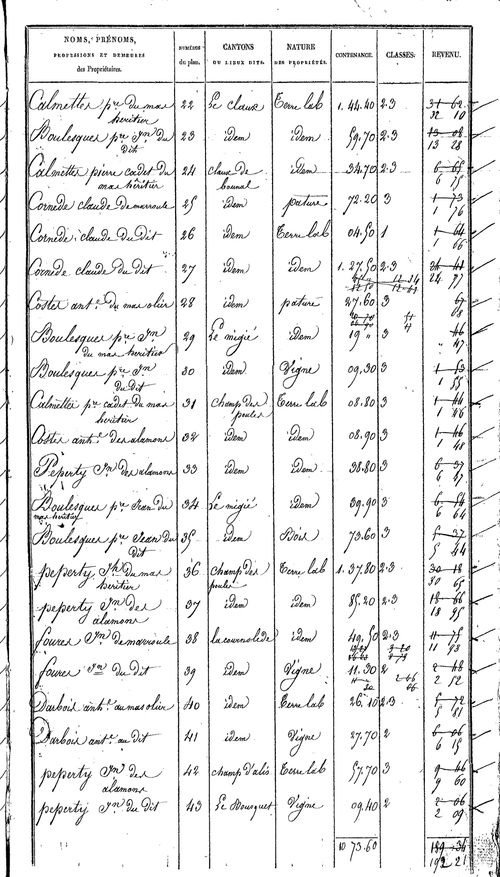 NOMS, PRÉNOMS, PROFESSIONS ET DEMEURES des Propriétaires. NUMÉROS du plan. CANTONS OU LIEUX DITS. NATURE DES PROPRIÉTÉS. CONTENANCE. CLASSES. REVENU.
Calmettes pre du mas heritier 22 Le claux Terre lab 1. 44. 40 2.3 31 62 32 10
Boulesques pre Jn du Dit 23 idem idem 59. 70 2.3 13 08 13 28
Calmettes pierre cadet du mas héritier 24 claux de bounal idem 34. 70 2.3 6 15
Cornède claude de marroule 25 idem pature 72. 20 3 1 73 1 76
Cornède claude Du Dit 26 idem Terre lab 04. 50 1 1 64 1 66
Cornède claude Du Dit 27 idem idem 1. 27. 50 2.3 24 77
Costes ant. Du mas olier 28 idem pature 27. 60 3 67 68
Boulesques pre Jn du mas heritier 29 Le migié idem 19 " 3 " 46 " 47
Boulesques pre Jn du Dit 30 idem Vigne 09. 30 3 1 53 1 55
Calmettes pre cadet du mas heritier 31 champ des poules Terre lab 08. 80 3 1 44 1 46
Costes anth. des alamons 32 idem idem 08. 90 3 1 46 1 48
Peperty Jn des alamons 33 idem idem 38. 80 3 6 37 6 47
Boulesques pre Jean du mas heritier 34 Le migié idem 39. 90 3 6 54 6 64
Boulesques pre Jean du Dit 35 idem Bois 73. 60 3 5 37 5 44
peperty Jh du mas heritier 36 Champ des poules Terre lab 1. 37. 80 2.3 30 18 30 65
peperty Jn des alamons 37 idem idem 85. 20 2.3 18 66 18 95
foures Jn de marroule 38 la cournolede idem 49. 50 2.3 11 75 11 93
foures Jn du dit 39 idem Vigne 11. 30 2 2 48 2 52
Darbois anth. au mas olier 40 idem Terre lab 26. 10 2.3 5 72 5 81
Darbois ant. au dit 41 idem Vigne 27. 70 2 6 06 6 15
peperty Jn des alamons 42 champ d'alis Terre lab 57. 70 3 9 46 9 60
peperty Jn du Dit 43 Le Bousquet Vigne 09. 40 2 2 06 2 09
10 73. 60 189 36 192 21